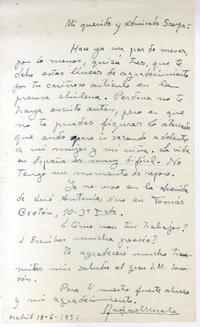 Mi querido y admirado Scarpa:
Hace ya un par de meses,
por lo menos, quizá tres, que te
debo estas líneas de agradecimiento
por tu cariñoso artículo en la
prensa chilena. Perdona no te
haya escrito antes, pero es que
no te puedes figurar lo atareado
que ando para ir sacando adelante
a mi mujer y mi niña. La vida
en España es muy difícil. No
tengo un momento de reposo.
Ya no vivo en la Avenida
de José Antonio, sino en Tomás
Bretón, 10-3º
¿Cómo van tus trabajos?
¿Escribes mucha poesía?
Te agradeceré mucho trans-
mitas mis saludos al gran J.M. Souvirón.
Para ti un fuerte abrazo
y mi agradecimiento.
Rafael Morales
Madrid 19-6-1951